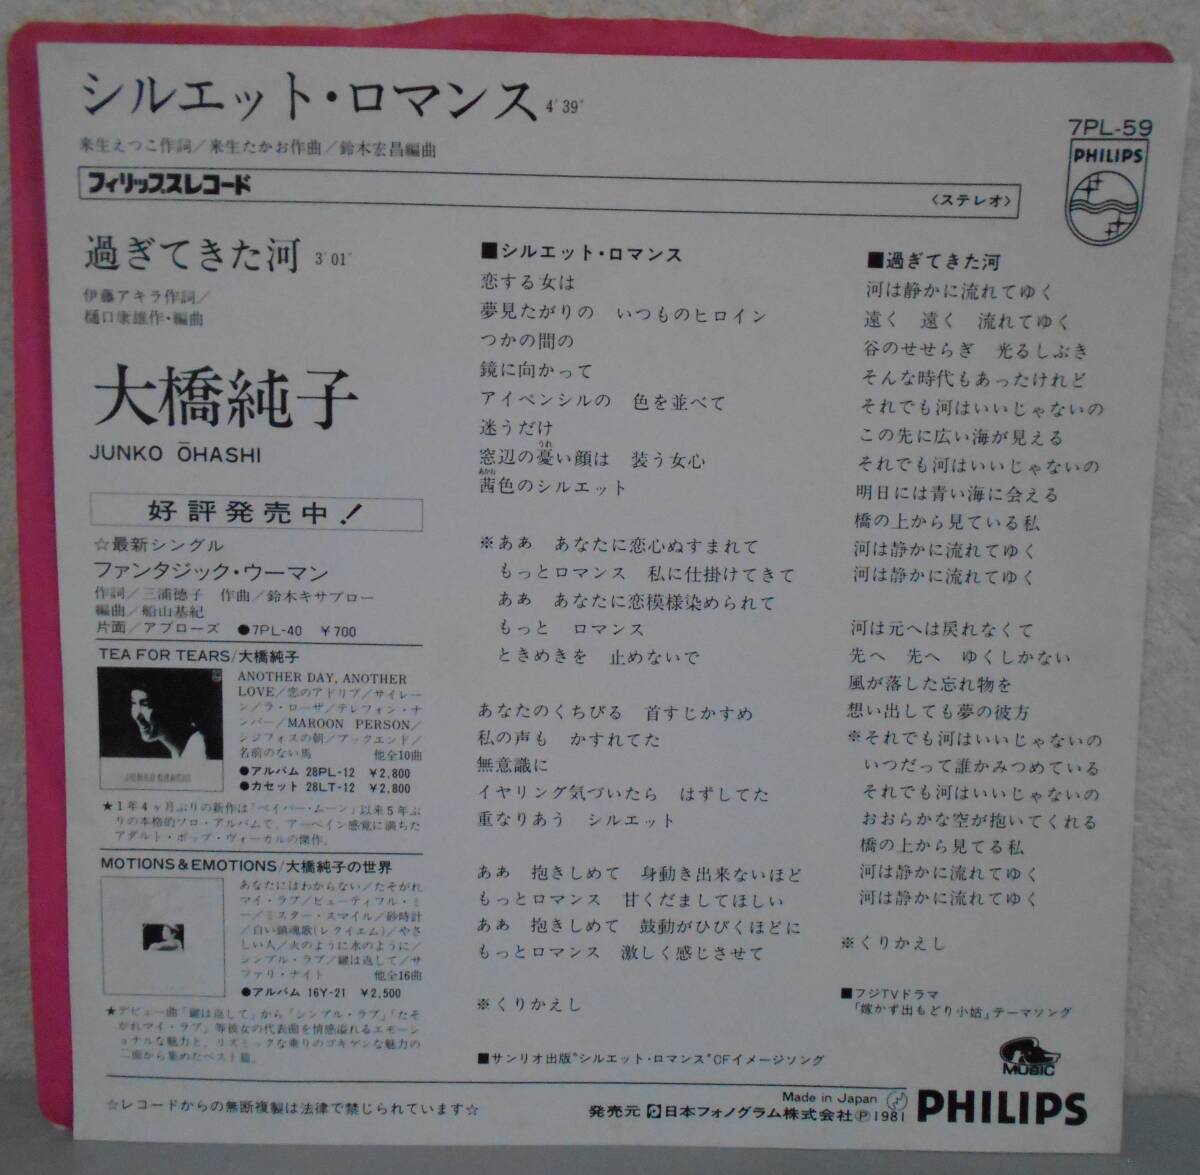 シルエット・ロマンス 4′39″
来生えつこ作詞／来生たかお作曲／鈴木宏昌編曲
7PL-59
PHILIPS
フィリップスレコード
〈ステレオ〉
過ぎてきた河 3′01″
伊藤アキラ作詞／
樋口康雄作・編曲
大橋純子
JUNKO ŌHASHI
好評発売中！
☆最新シングル
ファンタジック・ウーマン
作詞／三浦徳子 作曲／鈴木キサブロー
編曲／船山基紀
片面／アプローズ ●7PL-40 ￥700
TEA FOR TEARS/大橋純子
ANOTHER DAY, ANOTHER
LOVE／恋のアドリブ／サイレー
ン／ラ・ローザ／テレフォン・ナ
ンバー／MAROON PERSON／
シジフォスの朝／ブックエンド／
名前のない馬 他全10曲
●アルバム 28PL-12 ￥2,800
●カセット 28LT-12 ￥2,800
JUNKO OHASHI
★1年4ヶ月ぶりの新作は「ペイパー・ムーン」以来5年ぶ
りの本格的ソロ・アルバムで、アーベイン感覚に満ちた
アダルト・ポップ・ヴォーカルの傑作。
MOTIONS&EMOTIONS/大橋純子の世界
あなたにはわからない／たそがれ
マイ・ラブ／ビューティフル・ミ
ー／ミスター・スマイル／砂時計
／白い鎮魂歌(レクイエム)／やさ
しい人／火のように水のように／
シンプル・ラブ／鍵は返して／サ
ファリ・ナイト 他全16曲
●アルバム 16Y-21 ￥2,500
★デビュー曲「鍵は返して」から「シンプル・ラブ」「たそ
がれマイ・ラブ」等彼女の代表曲を情感溢れるエモーシ
ョナルな魅力と、リズミックな乗りのゴキゲンな魅力の
二面から集めたベスト篇。
■シルエット・ロマンス
恋する女は
夢見たがりの いつものヒロイン
つかの間の
鏡に向かって
アイペンシルの 色を並べて
迷うだけ
窓辺の憂い顔は 装う女心
うれ
茜色のシルエット
あかね
※ああ あなたに恋心ぬすまれて
もっとロマンス 私に仕掛けてきて
ああ あなたに恋模様染められて
もっと ロマンス
ときめきを 止めないで
あなたのくちびる 首すじかすめ
私の声も かすれてた
無意識に
イヤリング気づいたら はずしてた
重なりあう シルエット
ああ 抱きしめて 身動き出来ないほど
もっとロマンス 甘くだましてほしい
ああ 抱きしめて 鼓動がひびくほどに
もっとロマンス 激しく感じさせて
※くりかえし
■サンリオ出版"シルエット・ロマンス"CFイメージソング
■過ぎてきた河
河は静かに流れてゆく
遠く 遠く 流れてゆく
谷のせせらぎ 光るしぶき
そんな時代もあったけれど
それでも河はいいじゃないの
この先に広い海が見える
それでも河はいいじゃないの
明日には青い海に会える
橋の上から見ている私
河は静かに流れてゆく
河は静かに流れてゆく
河は元へは戻れなくて
先へ 先へ ゆくしかない
風が落した忘れ物を
想い出しても夢の彼方
※それでも河はいいじゃないの
いつだって誰かみつめている
それでも河はいいじゃないの
おおらかな空が抱いてくれる
橋の上から見てる私
河は静かに流れてゆく
河は静かに流れてゆく
※くりかえし
■フジTVドラマ
「嫁かず出もどり小姑」テーマソング
MUSIC
☆レコードからの無断複製は法律で禁じられています☆
Made in Japan
発売元 日本フォノグラム株式会社Ⓟ1981
PHILIPS